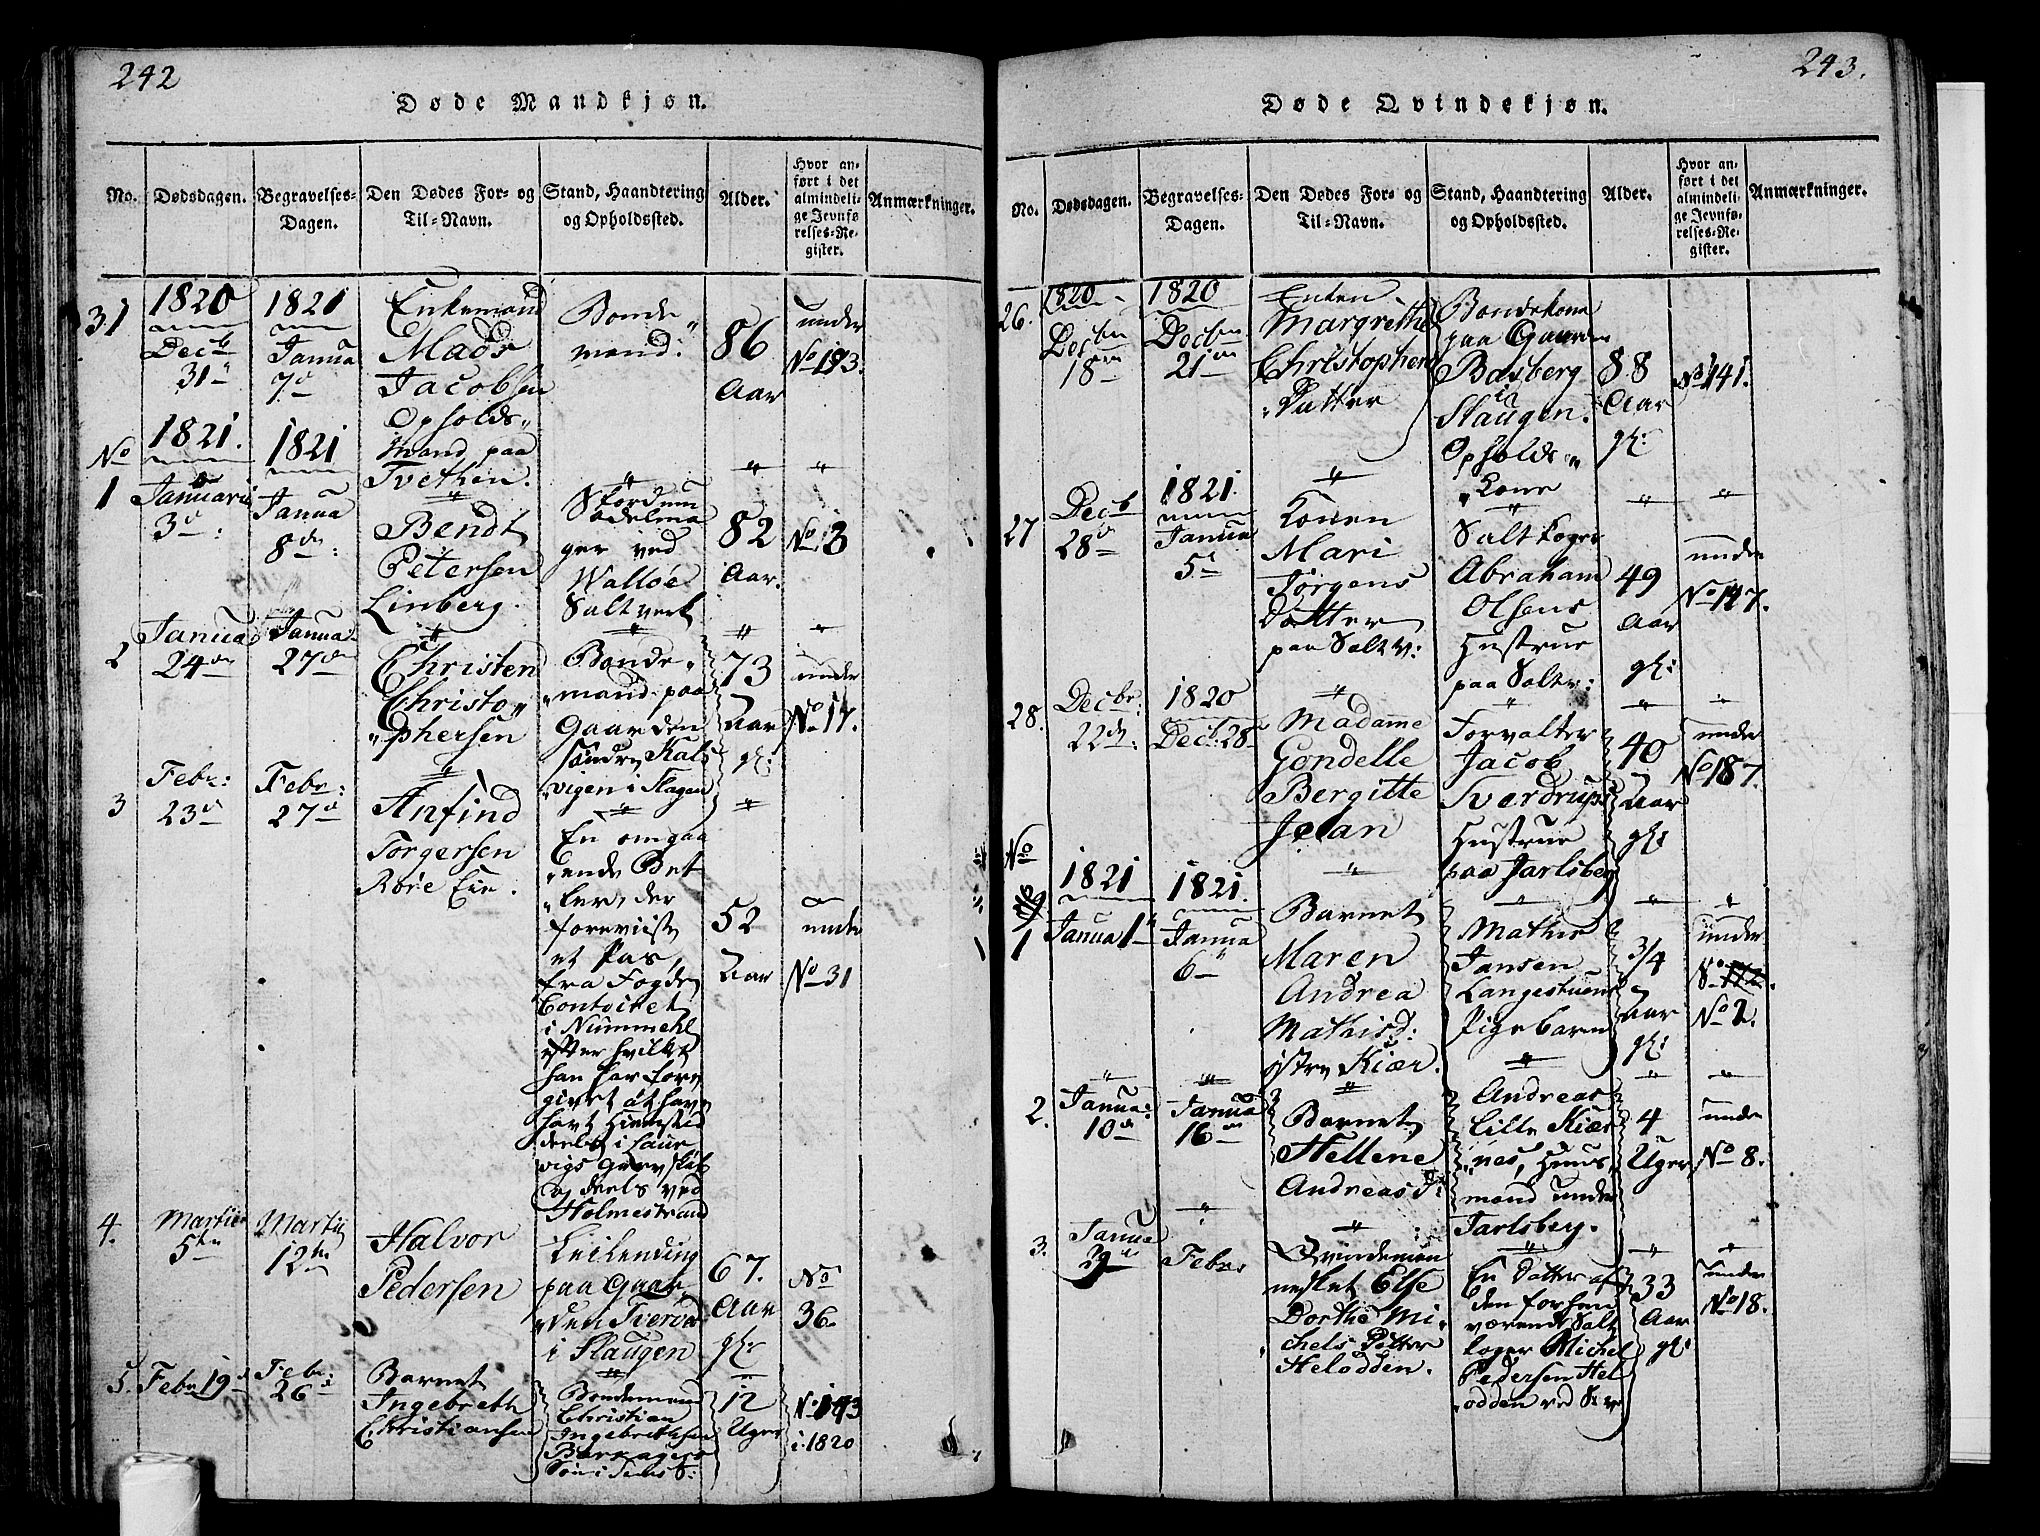 242
Døde Mandkjøn.
No.
Dødsdagen.
Begravelses-
Dagen.
Den Dødes For- og
Til-Navn.
Stand, Haandtering
og Opholdssted.
Alder.
Hvor an-
ført i det
almindeli-
ge Jevnfø-
relses-Re-
gister.
Anmærkninger.
31
1820
Decb
31
1821
Janua
7
Enkemand
Mads
Jacobsen
Opholds
mand paa
Tvethen.
Bonde
mand:
86
Aar
under
No 193.
No
1
1821.
Januarii
3
1821
Janua
8
Bendt
Petersen
Linberg.
ger ved
Walløe
Saltverk
82
Aar.
No 3
2
Janua
24
Janua
27
Christen
Christo
phersen
Bonde
mand paa
Gaarden
Søndre
vigen i Slagen
73
Aar
gl:
under
No 17.
3
Febr:
23
Febr:
27
Anfind
Torgersen
Røre Eie.
En omgaa
ende Bet
ler, der
foreviiste
et Pas,
fra Fogde
Contoiret
i Nummehl
efter hvilket
han har fore
givet at have
havt Hiemsted
deels i Laur
vigs Grevskab
og deels ved
Holmestrand
52
Aar
under
No 31
4.
Martii
5
Martii
12
Halvor
Pedersen
Leilending
paa Gaar
den Tveved
i Slaugen
67.
Aar
gl:
No
36
5.
Febr 19
Febr:
26
Barnet
Ingebreth
Christiansen
Bondemand
Christian
Ingebrethsen
Søn i Sems S:
12
Uger
No 193
i 1820
243.
Døde Qvindekjøn.
No.
Dødsdagen.
Begravelses-
Dagen.
Den Dødes For- og
Til-Navn.
Stand, Haandtering
og Opholdssted.
Alder.
Hvor an-
ført i det
almindeli-
ge Jevnfø-
relses-Re-
gister.
Anmærkninger.
26.
1820
Decbr
18
1820
Decbr
21
Enken
Margrethe
Christophers
Datter
Bondekone
paa Gaarden
Basberg
i
Slaugen.
Opholds
Kone
88
Aar
gl:
No 141.
27
Decb
28
1821.
Janua
5
Konen
Mari
Jørgens
Datter
paa Saltv:
Saltkoger
Abraham
Olsens
Hustrue
paa Saltv:
49
Aar
gl:
under
No 147.
28.
Decbr:
22
1820
Decb: 28
Madame
Gondelle
Bergitte
Jelan
Forvalter
Jacob
Sverdrups
Hustrue
paa Jarlsberg
40
Aar
gl:
under
No 187.
No
1
1821
Janua 1
1821.
Janua
6
Barnet
Maren
Andrea
Mathisd:
østre Kiær.
Mathis
Jansen
Langestuens
Pigebarn
3/4
Aar
gl:
under
No 2.
2.
Janua:
10
Janua
16
Barnet
Hellene
Andreas D:
Andreas
Lille Kiær
nes, Huus
mand under
Jarlsberg.
4
Uger
under
No 8.
3.
Janua
29
Febr
Qvindemen
nesket Else
Dorthe Mi
chels Datter
Helodden.
En Datter af
den forhen
værende Salt
koger Michel
Pedersen Hel
odden ved S:v
33
Aar
gl:
under
No 18.